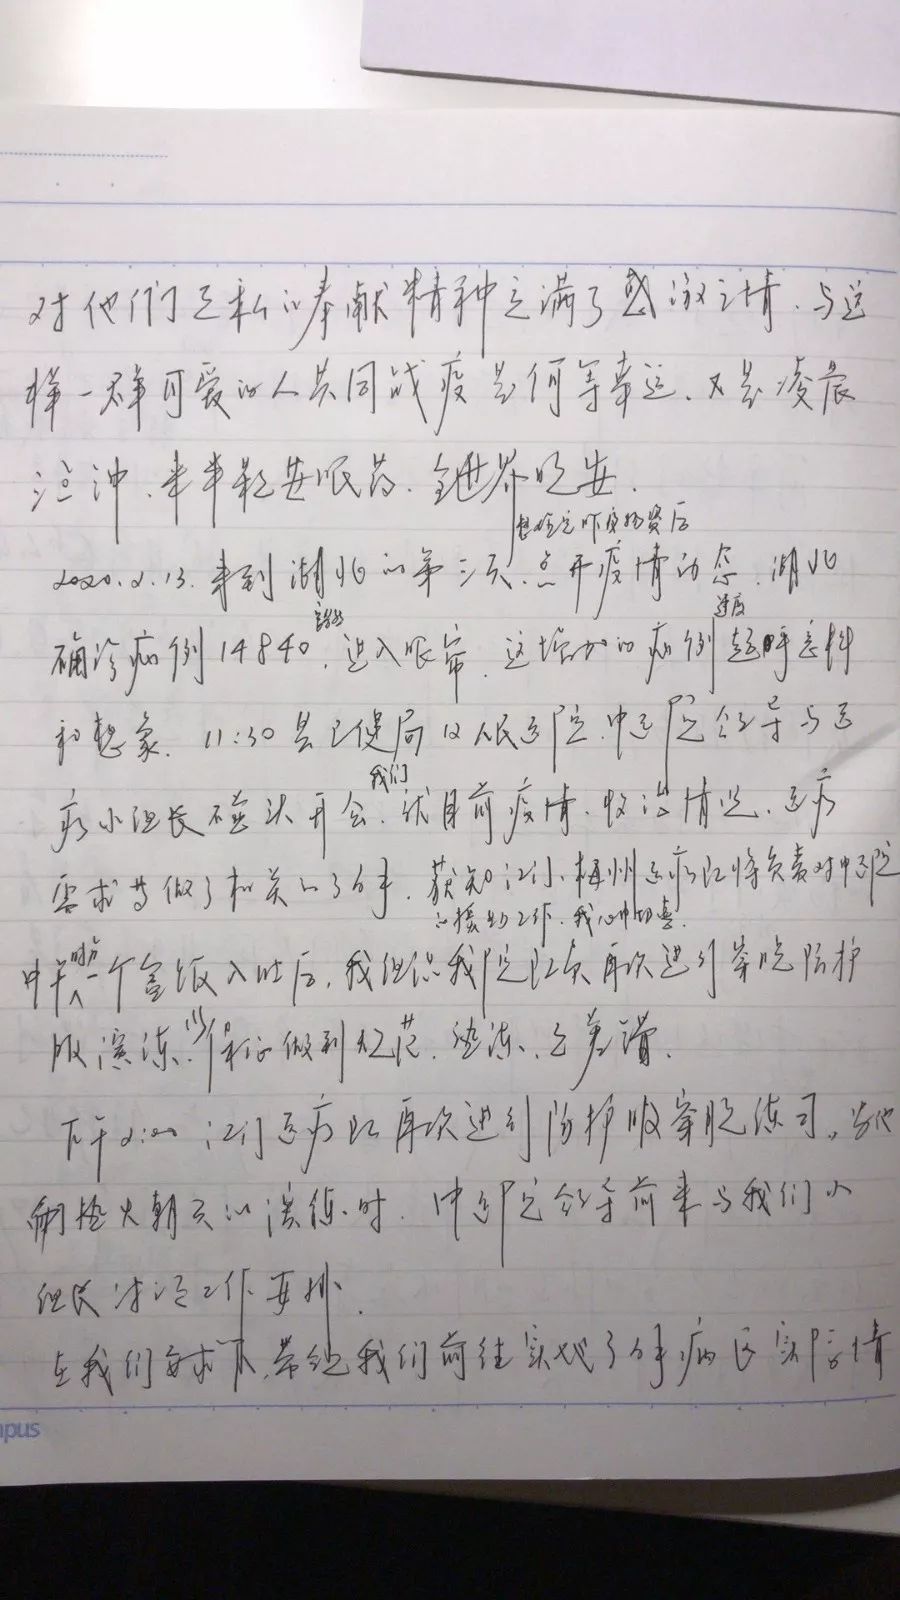 对他们无私的奉献精神充满了感激之情、与这
样一群可爱的人共同战疫是何等幸运、又是凌晨
半颗安眠药、全世界晚安、
后
2020.2.13、来到湖北的第三天、点开疫情动态、湖北
确诊病例14840 进入眼帘、这增加的病例 速度 超乎意料
和想象、11:30县卫健局及人民医院、中医院领导与医
疗小组长碰头开会、我们 就目前疫情、收治情况、医疗
需求等做了相关的了解、获知江门、梅州医疗队将负责对中医院
的援助工作、我心中切喜、
中午 一个盒饭入肚后、我组织我院队员再次进行穿脱防护
服演练、保证做到规范、熟练、无差错、
下午2:00 江门医疗队再次进行防护服穿脱练习、当他
们热火朝天的演练时、中医院领导前来与我们小
组长讨论工作安排、
在我们要求下、带领我们前往实地了解病区实际情
mpus